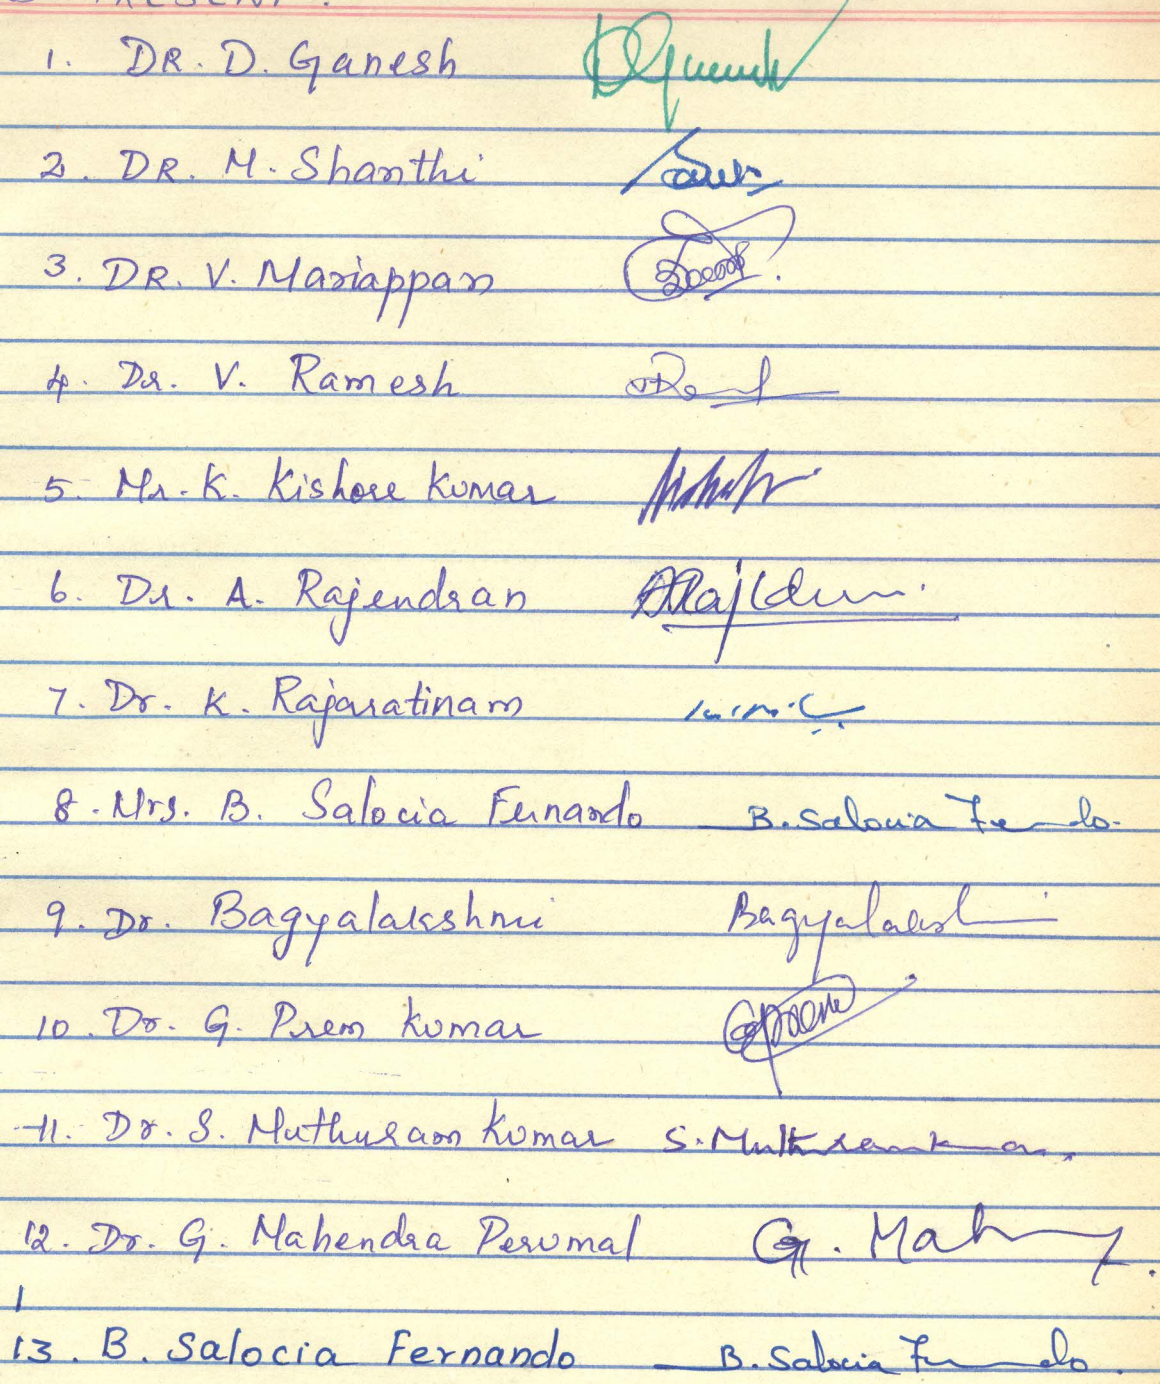 PRESENT:
1. DR. D. Ganesh DGanesh
2. DR. M. Shanthi
3. DR. V. Mariappan
4. Dr. V. Ramesh
5. Mr. K. Kishore Kumar
6. Dr. A. Rajendran
7. Dr. K. Rajaratinam
8. Mrs. B. Salocia Fernando B. Salocia Fernando
9. Dr. Bagyalakshmi Bagyalakshmi
10. Dr. G. Prem Kumar
11. Dr. S. Muthuram Kumar S. Muthuramkumar
12. Dr. G. Mahendra Perumal G. Mah
13. B. Salocia Fernando B. Salocia Fernando